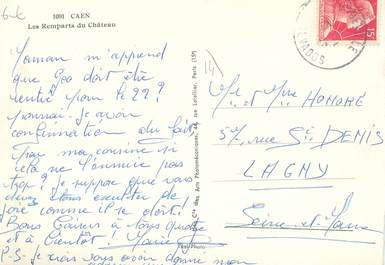 1091 CAEN
Les Remparts du Château
Maman m'apprend
que Geo doit être
rentré pour le 22?
pourrai-je avoir
confirmation du fait
par ma cousine si
cela ne l'ennuie pas
trop? Je suppose que vous
devez tous exulter de
joie comme il se doit!
Bons baisers à tous quatre
et à bientôt.
P.S. je vous mon
Mr et Mme HONORÉ
57, rue St DENIS
LAGNY
Seine-et-Marne
15F